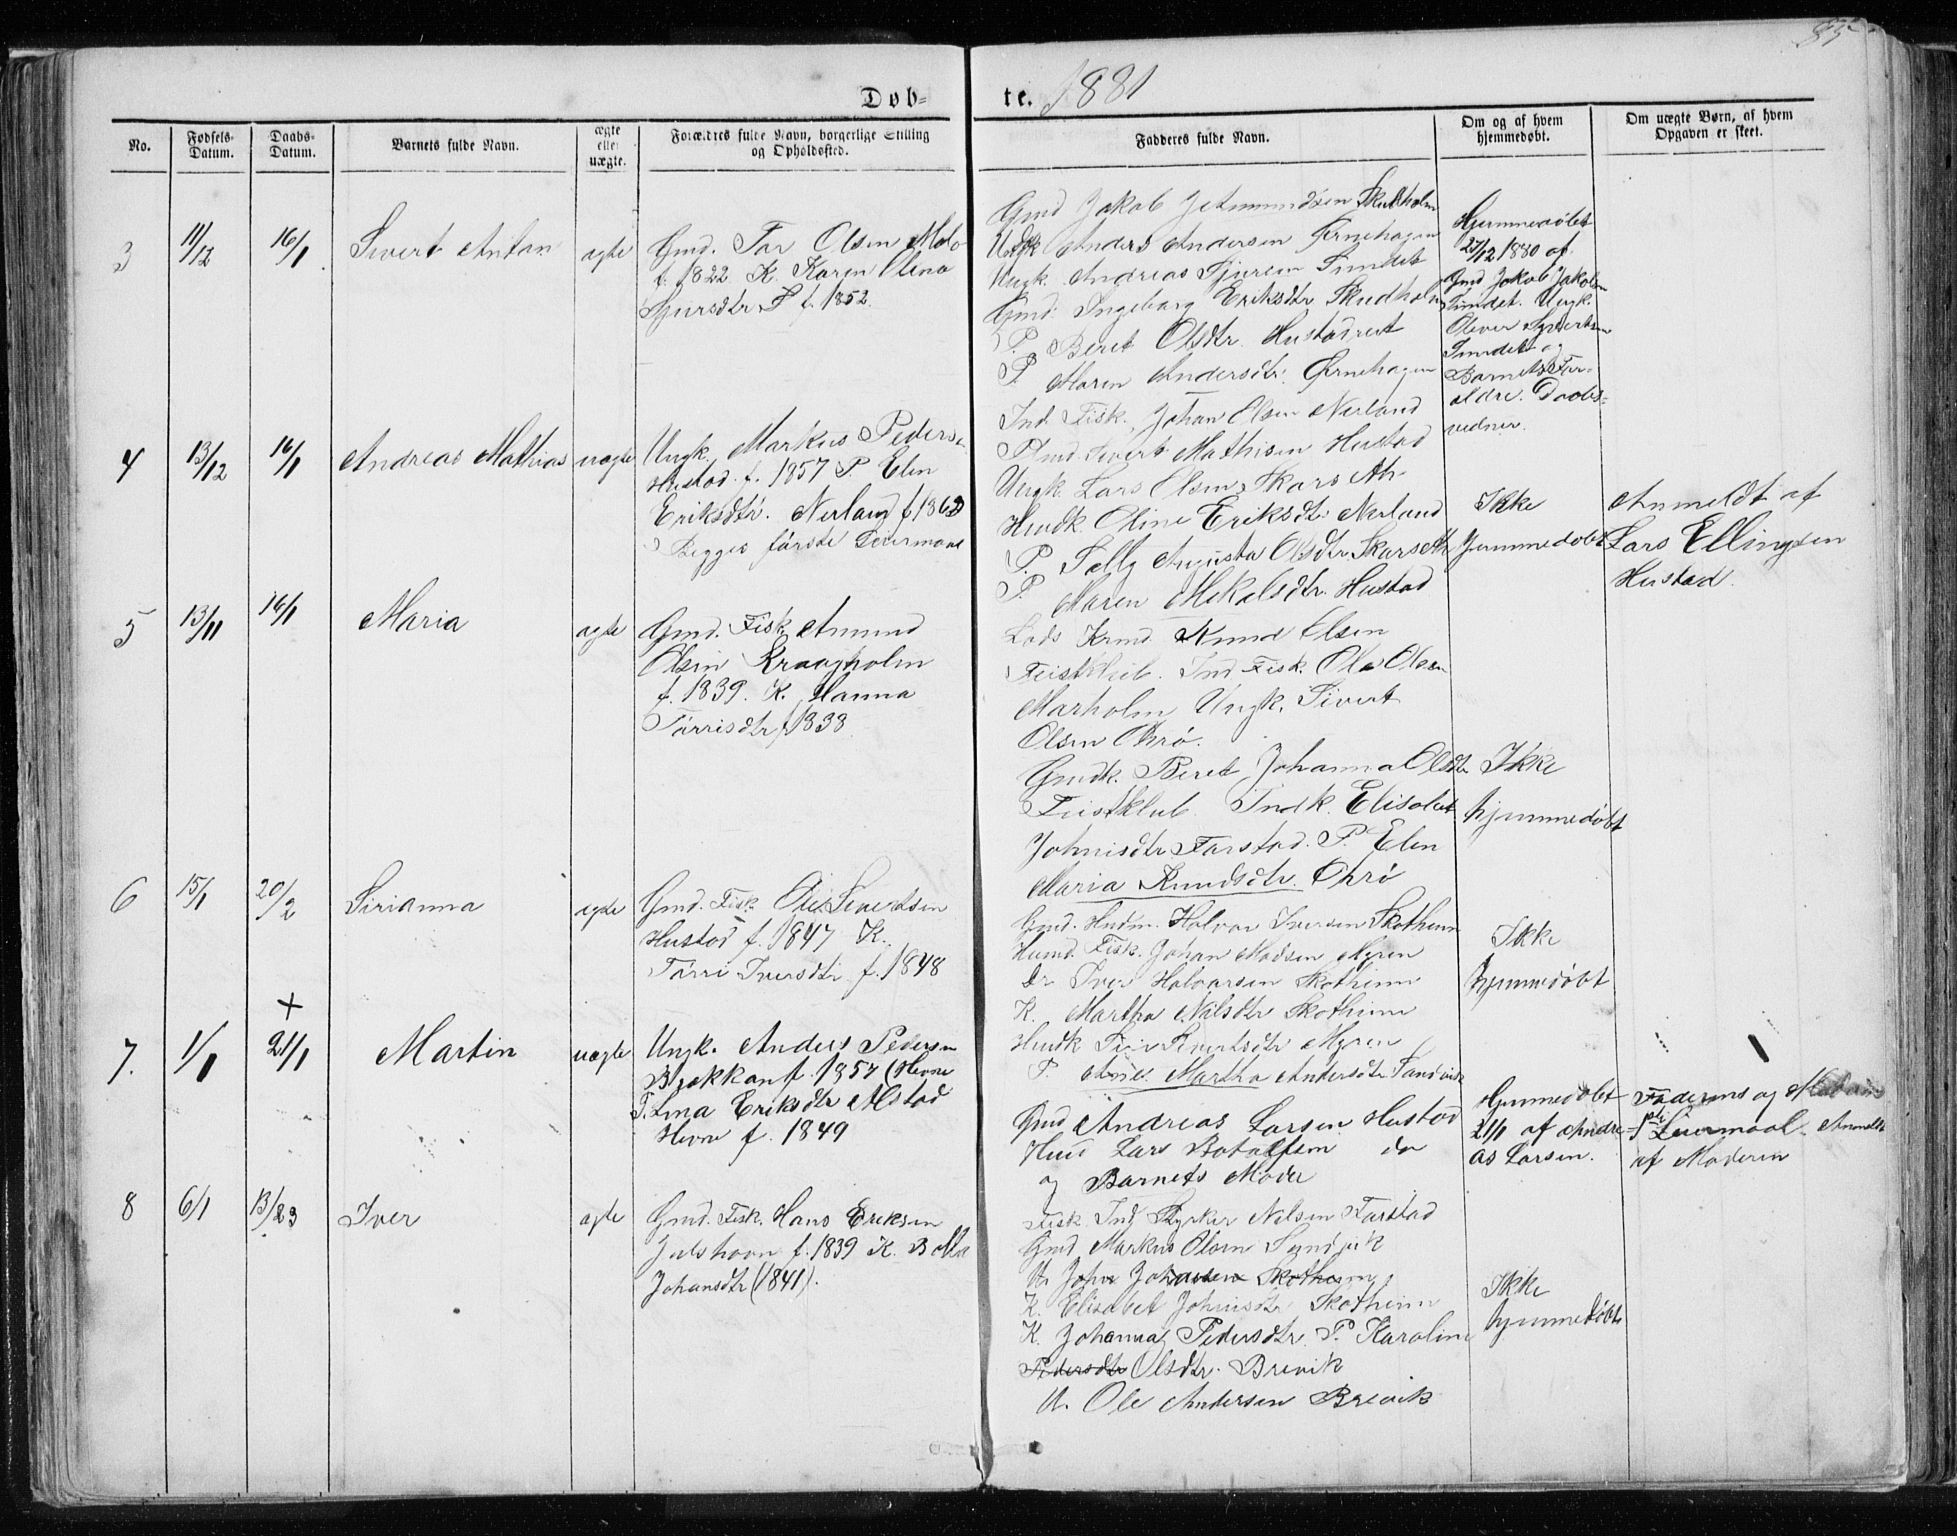 85
Døb- te. 1881
No.
Fødsels-
Datum.
Daabs-
Datum.
Barnets fulde Navn.
ægte
eller
uægte.
Forældres fulde Navn, borgerlige Stilling
og Opholdssted.
Fadderes fulde Navn.
Om og af hvem
hjemmedøbt.
Om uægte Børn, af hvem
Opgaven er skeet.
3
11/12
16/1
Sivert Antan
ægte
Gmd. Tor Olsen Malo
f. 1822 K. Karen Olena
Sjursdtr f. 1852.
Gmd Jakob Jetmundsen Skudholm
Ungk Anders Andersen Ørnehagen
Ungk. Andreas Sjursen Sundet
Gmd. Ingeborg Eriksdtr Skudholm
P. Beret Olsdtr. Hustad
P. Maren Andersdtr. Ørnehagen
Hjemmedøbt
27/12 1880 af
Gmd Jakob Jakobsen
Sundet. Ungk.
Oliver Syvertsen
Sundet og
Barnets For-
ældre. Daabs-
vidner.
4
13/12
16/1
Andreas Mathias
uægte
Ungk. Markus Peders.
Hustad f. 1857 P. Elen
Eriksdtr. Nerland f 1862
Begges første Leiermaal
Ind. Fisk. Johan Olsen Nerland
Gmd. Sivert Mathisen Hustad
Ungk. Lars Olsen Skarseth
Hmdk. Oline Eriksdtr. Nerland
P. Augusta Olsdtr. Skarseth
P. Maren Mikalsdtr. Hustad
Ikke
hjemmedøbt
Anmeldt af
Lars Ellingsen
Hustad.
5
13/11
16/1
Maria
ægte
Gmd. Fisk. Amund
Olsen Kraagholm
f. 1839. K. Hanna
Tørrisdtr f 1838
Lods Knud Olsen
Feistklub. Ind. Fisk. Ola Olsen
Marholm Ungk. Sivert
Olsen Ohrø.
Gmdk. Beret Johanna Olsdtr
Feistklub Indk. Elisabet
Johnisdtr Farstad. P. Elen
Maria Knudsdtr. Ohrø
Ikke
hjemmedøbt
6
15/1
20/2
Sirianna
ægte
Gmd. Fisk. Ole Sivertsen
Hustad f. 1847 K.
Tørri Iversdtr. f. 1848
Gmd. Husm. Halvor Iversen Skotheim
Husmd. Fisk. Johan Madsen Myren
Dr Iver Halvorsen Skotheim
K. Martha Nilsdtr Skotheim
Hmdk Siri Sivertsdtr Myren
P. Martha Andersdtr Sandvik
Ikke
hjemmedøbt
7.
1/1
+
21/1
Martin
uægte
Ungk. Anders Pedersen
f. 1857 (Hevne
P. Lina Eriksdtr Alstad
Hevne f. 1849
Gmd Andreas Larsen Hustad
Hmd Lars Botolfsen do
og Barnets Moder
Hjemmedøbt
21/1 af Andre-
as Larsen.
Faderens og Moderens
1ste Leiermaal. Anmeldt
af Moderen
8
6/1
13/23
Iver
ægte
Gmd. Fisk. Hans Eriksen
Julshavn f. 1839 K. Bolla
Johansdtr (1841).
Fisk. Ind Styrker Nilsen Farstad
Gmd Markus Olsen Sandvik
U. John Johansen Skotheim
K. Elisabet Johnisdtr Skotheim
K. Johanna Pedersdtr. P. Karoline
Pedersdtr Olsdtr. Brevik
U. Ole Andersen Brevik
Ikke
hjemmedøbt